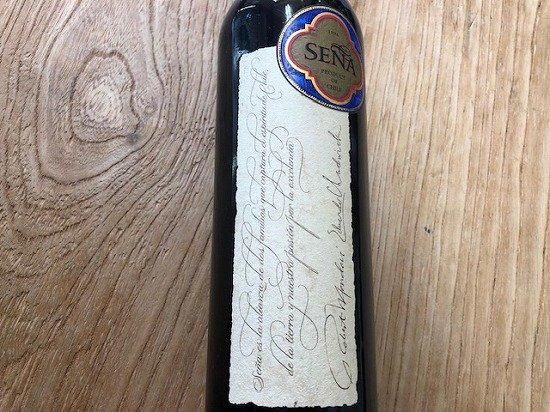 SEÑA
PRODUCT
OF
CHILE
Seña es la alianza de dos familias que captura el esplendor de Chile,
de la tierra y nuestra pasión por la excelencia.
Robert Mondavi Eduardo Chadwick